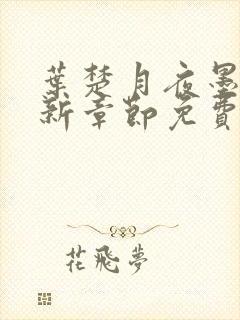 葉楚月夜墨
新章節免費
花飛夢